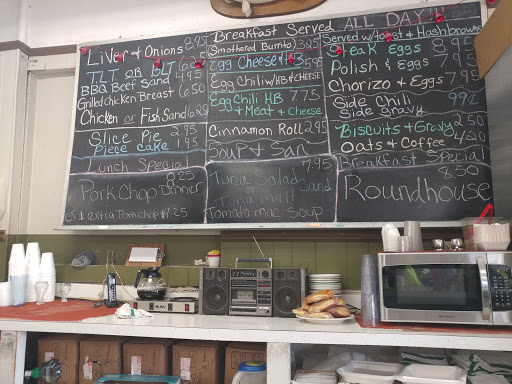 Breakfast Served ALL DAY!!!
Liver & Onions 8.95
TLT or BLT
BBQ Beef Sand 4.95
Grilled Chicken Breast 6.50
Chicken or Fish Sand 6.25
Slice Pie 2.95
Piece cake 1.95
Lunch Special
Pork Chop Dinner 8.25
1 extra Porkchop $7.25
Smothered Burrito
Egg Cheese
Egg Chili w/HB & CHEESE
Egg Chili HB 7.75
+ Meat & Cheese
Cinnamon Roll 2.95
Soup & San
7.95
Tuna Salad Sand
or
Tuna melt
Tomato mac Soup
Served w/toast & Hashbrowns
Steak Eggs 8.95
Polish & Eggs 7.45
Chorizo & Eggs 7.95
Side Chili 99¢
Side gravy
Biscuits & Gravy 2.50
Oats & Coffee 4.20
Breakfast Special
8.50
Roundhouse